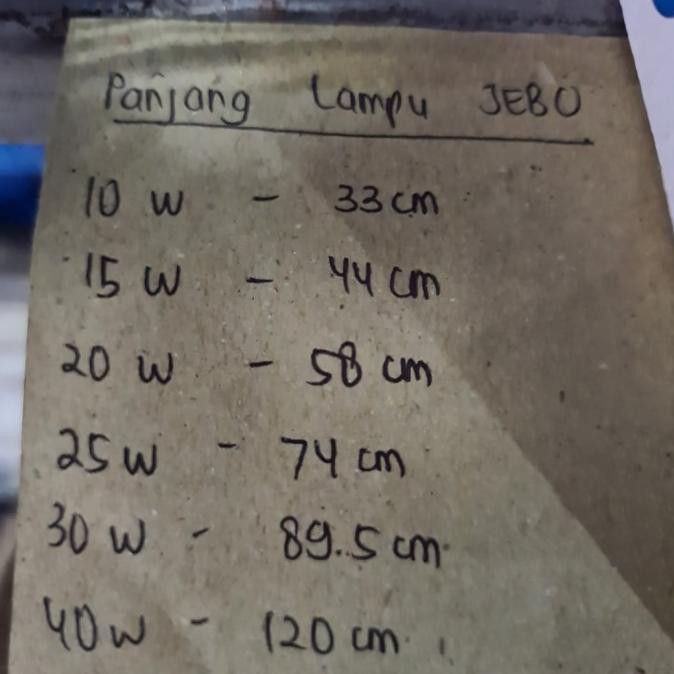 Panjang Lampu JEBO
10 W - 33 cm
15 W - 44 cm
20 W - 58 cm
25 W - 74 cm
30 W - 89.5 cm
40 W - 120 cm